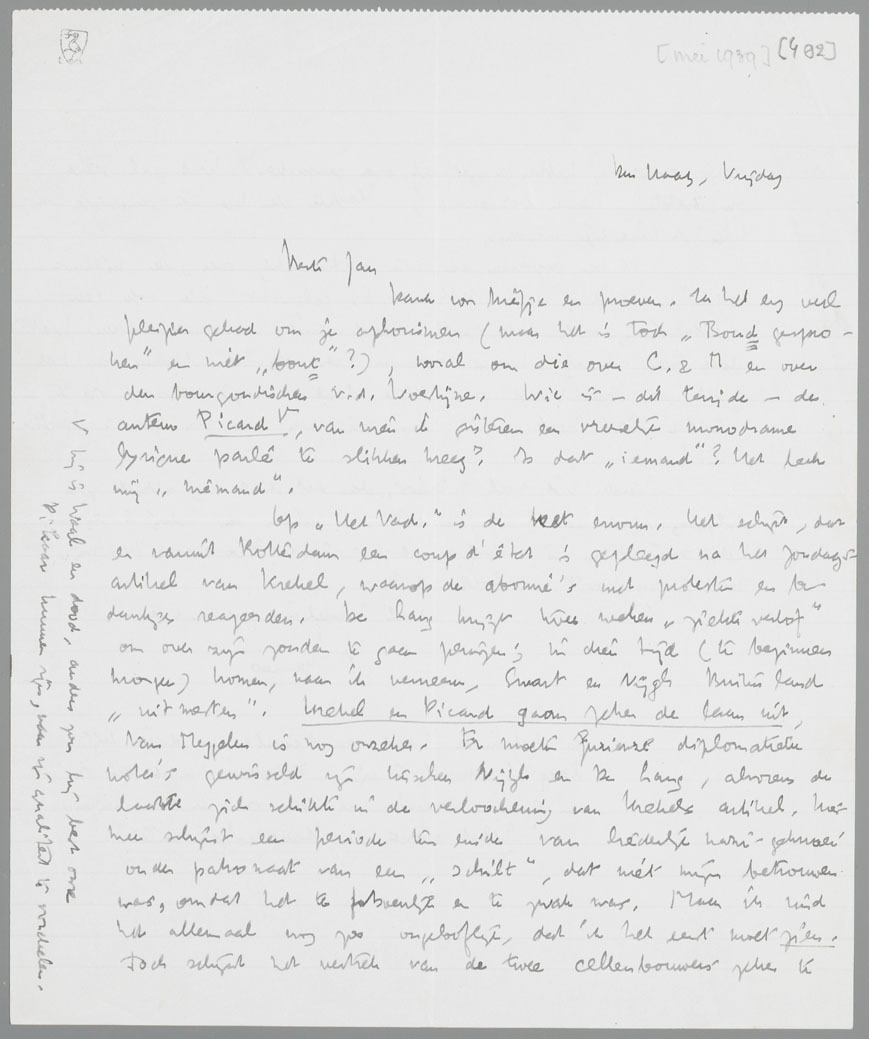 [mei 1939] [492]
Den Haag, Vrijdag
Beste Jan
Dank voor briefje en proeven. Ik heb erg veel
pleizier gehad om je aphorismen (maar het is toch „Boud gespro-
ken” en niet „bout”?), vooral om die over C. & M en over
den bourgondischen v.d. Woestijne. Wie is – dit terzijde – de
auteur Picard V, van wien ik gisteren een vreeselijk monodrame
lyrique parlé te slikken kreeg? Is dat „iemand”? Het leek
mij „niemand”.
Op „Het Vad.” is de keet enorm. Het schijnt, dat
er vanuit Rotterdam een coup d'état is gepleegd na het Zondags-
artikel van Krekel, waarop de abonné's met protesten en be-
dankjes reageerden. De Lang krijgt twee weken „ziekteverlof”
om over zijn zonden te gaan peinzen; in dien tijd (te beginnen
morgen) komen, naar ik verneem, Smart en Nijgh Buitenland
„uitmesten”. Krekel en Picard gaan zeker de laan uit,
Van Meygelen is nog onzeker. Er moeten furieuze diplomatieke
nota's gewisseld zijn tusschen Nijgh en De Lang, alvorens de
laatste zich schikte in de verloochening van Krekels artikel. Hier
mee schijnt een periode ten einde van liederlijk nazi-geknoei
onder patronaat van een „schild”, dat niet mijn vertrouwen
was, omdat het te en te zwak was. Maar ik vind
het allemaal nog zoo ongelooflijk, dat ik het eerst moet zien.
Toch schijnt het vertrek van de twee cellenbouwers zeker te
V hij is Waal en dood, anders zou hij best onze
Picard kunnen zijn, naar zijn qualiteit te oordeelen.